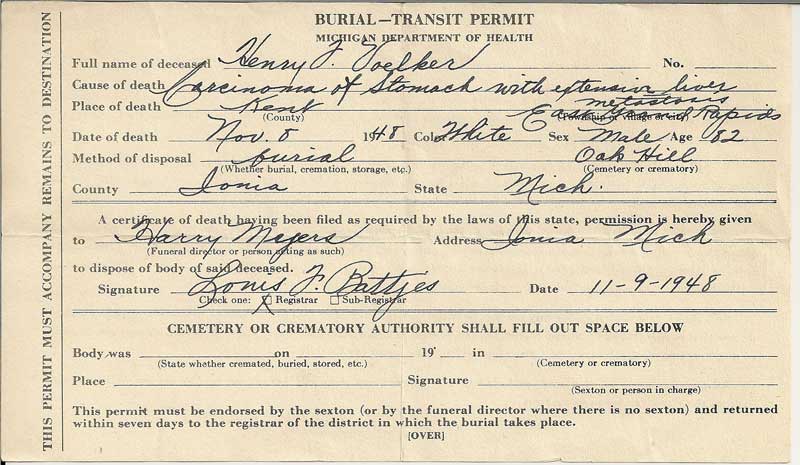 THIS PERMIT MUST ACCOMPANY REMAINS TO DESTINATION
BURIAL—TRANSIT PERMIT
MICHIGAN DEPARTMENT OF HEALTH
Full name of deceased Henry F. Voelker No.
Cause of death Carcinoma of Stomach with extensive liver
metastasis
Place of death Kent East Grand Rapids
(County) (Township or village or city)
Date of death Nov. 8 1948 Color White Sex Male Age 82
Method of disposal burial Oak Hill
(Whether burial, cremation, storage, etc.) (Cemetery or crematory)
County Ionia State Mich.
A certificate of death having been filed as required by the laws of this state, permission is hereby given
to Harry Meyers Address Ionia Mich
(Funeral director or person acting as such)
to dispose of body of said deceased.
Signature Louis F. Battjes Date 11-9-1948
Check one: Registrar Sub-Registrar
CEMETERY OR CREMATORY AUTHORITY SHALL FILL OUT SPACE BELOW
Body was on 19 in
(State whether cremated, buried, stored, etc.) (Cemetery or crematory)
Place Signature
(Sexton or person in charge)
This permit must be endorsed by the sexton (or by the funeral director where there is no sexton) and returned
within seven days to the registrar of the district in which the burial takes place.
[OVER]